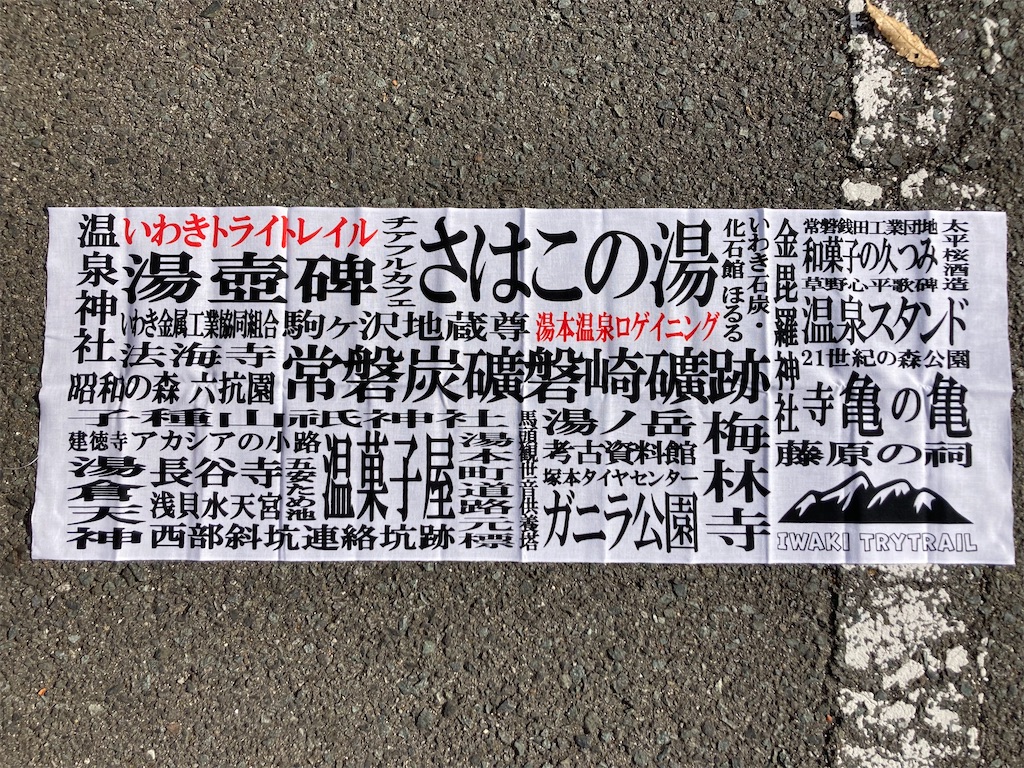 温泉神社
いわきトライトレイル
湯壺碑
いわき金属工業協同組合
法海寺
昭和の森 六抗園
チアフルカフェ
さはこの湯
駒ヶ沢地蔵尊
湯本温泉ロゲイニング
常磐炭礦磐崎礦跡
いわき石炭・
化石館 ほるる
金毘羅神社
常磐銭田工業団地
和菓子の久つみ
草野心平歌碑
太平桜酒造
温泉スタンド
21世紀の森公園
寺亀の亀
藤原の祠
子種山祇神社
建徳寺
アカシアの小路
湯倉天神
長谷寺
浅貝水天宮
西部斜坑連絡坑跡
温菓子屋
湯本町道路元標
馬頭観世音供養塔
湯ノ岳
考古資料館
塚本タイヤセンター
ガニラ公園
梅林寺
IWAKI TRYTRAIL